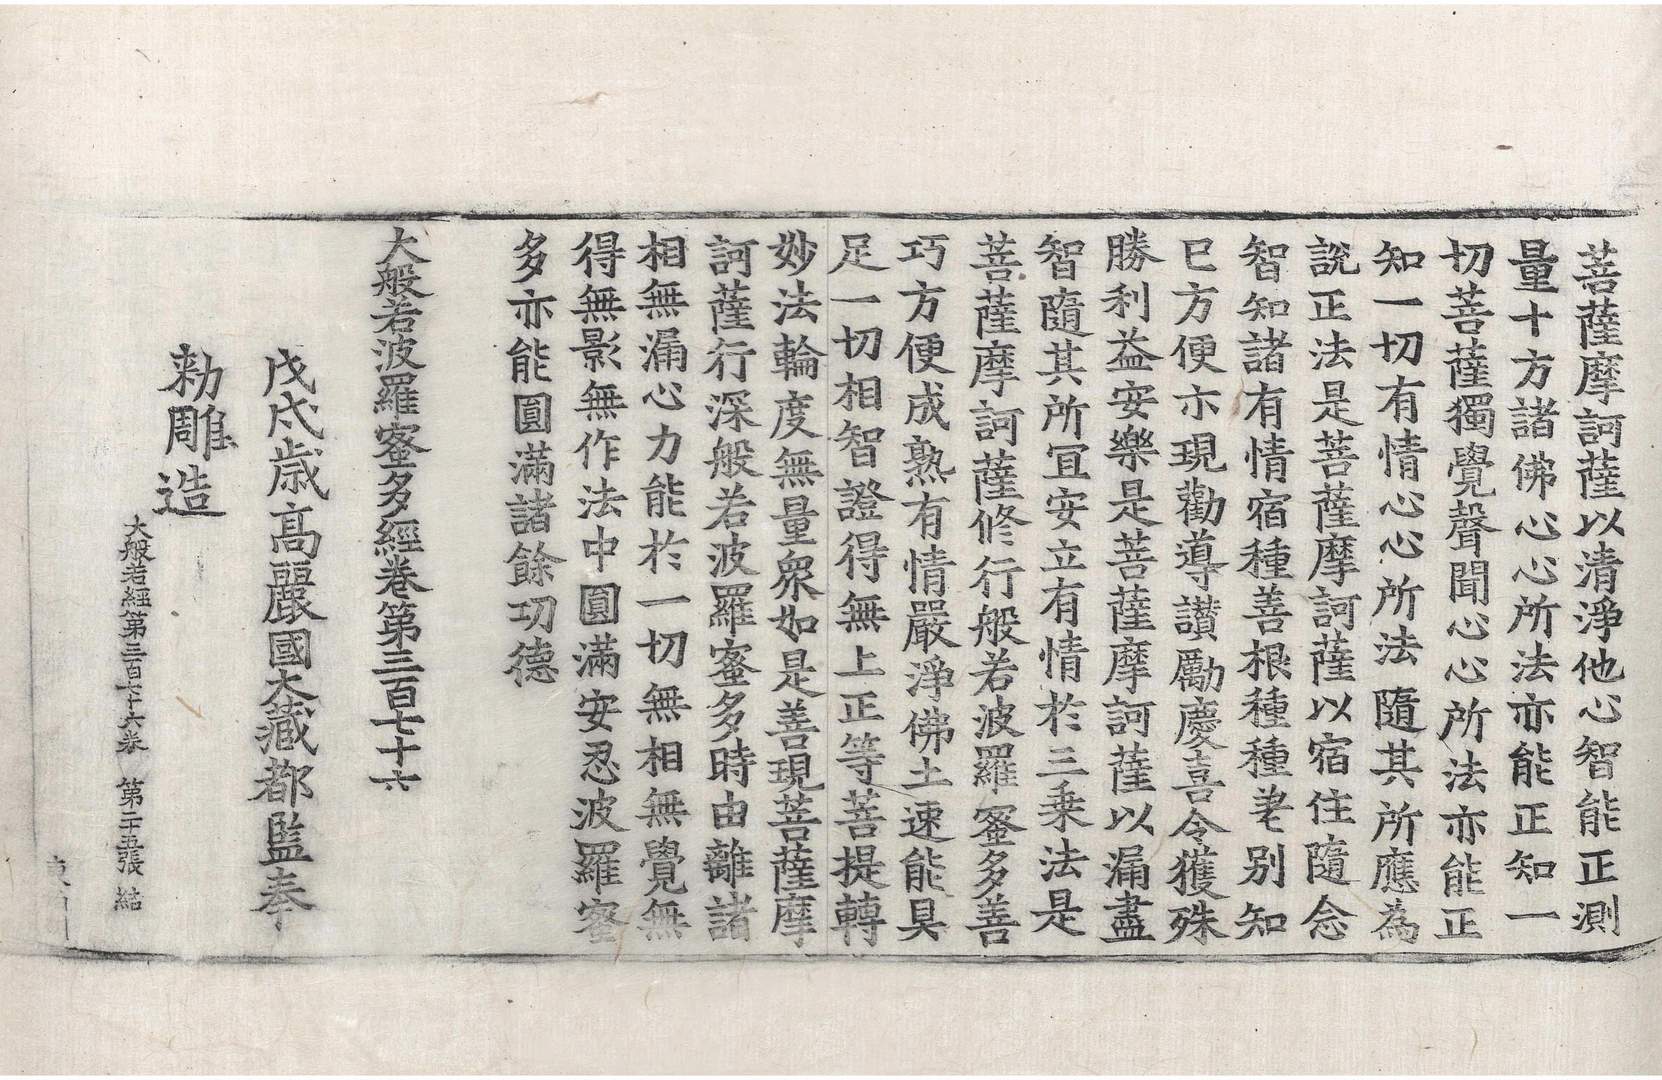 菩薩摩訶薩以清淨他心智能正測
量十方諸佛心心所法亦能正知一
切菩薩獨覺聲聞心心所法亦能正
知一切有情心心所法隨其所應為
說正法是菩薩摩訶薩以宿住隨念
智知諸有情宿種善根種種差别知
已方便亦現勸導讃勵慶喜令獲殊
勝利益安樂是菩薩摩訶薩以漏盡
智隨其所宜安立有情於三乘法是
菩薩摩訶薩修行般若波羅蜜多善
巧方便成熟有情嚴淨佛土速能具
足一切相智證得無上正等菩提轉
妙法輪度無量衆如是善現菩薩摩
訶薩行深般若波羅蜜多時由離諸
相無漏心力能於一切無相無覺無
得無影無作法中圓滿安忍波羅蜜
多亦能圓滿諸餘功德
大般若波羅蜜多經卷第三百七十六
戊戌歲高麗國大藏都監奉
勑雕造
大般若經第三百七十六卷 第二十五張 結